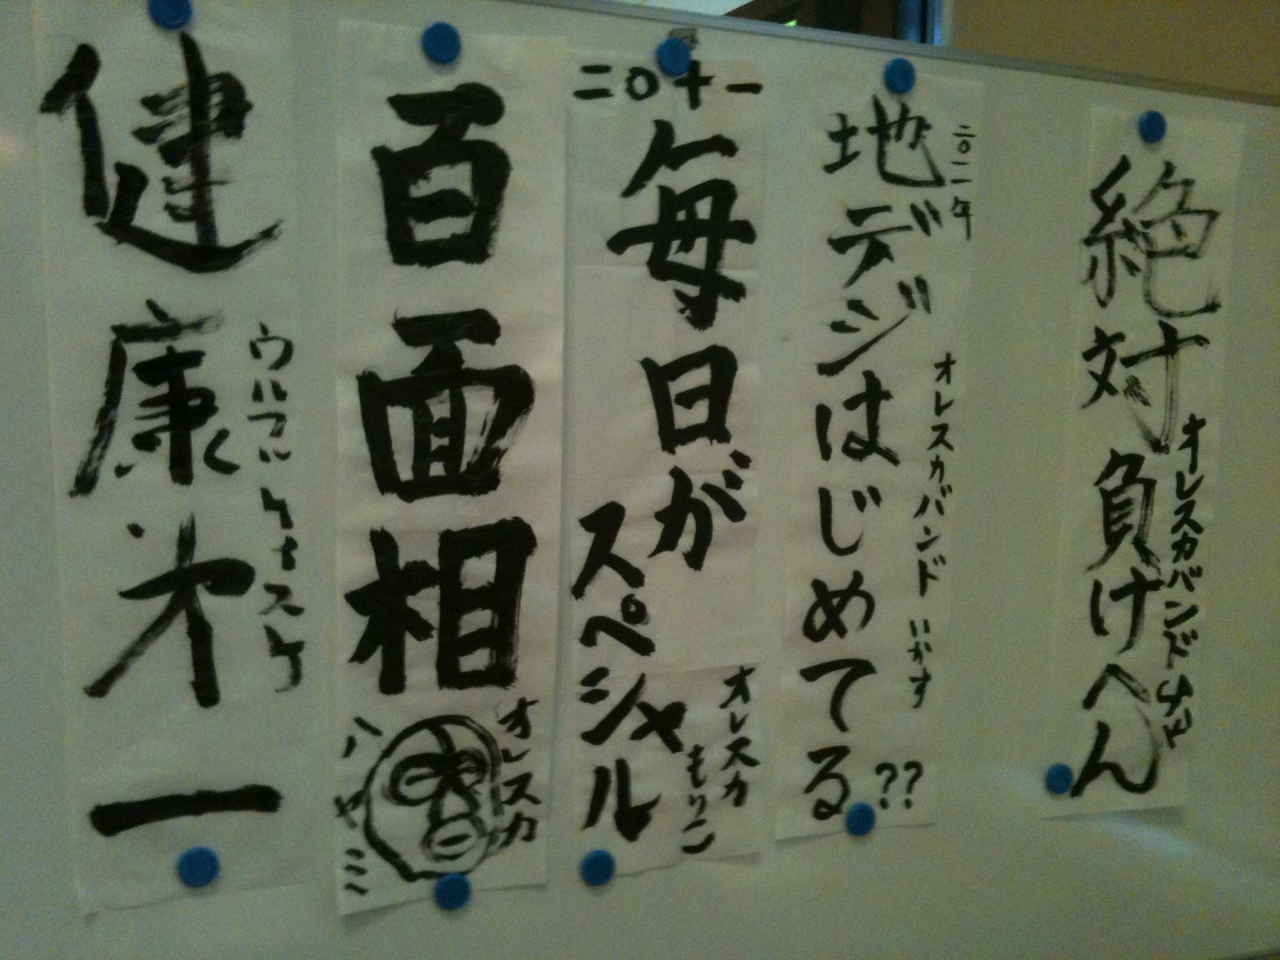 絶対負けへん
オレスカバンド
二〇一一年
地デジはじめてる??
オレスカバンド いかす
二〇十一
毎日が
スペシャル
オレスカ
もりこ
百面相
オレスカ
ハヤミ
健康才一
ウルフルケイスケ